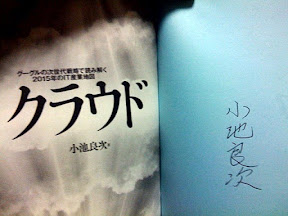 グーグルの次世代戦略で読み解く
2015年のIT産業地図
クラウド
小池良次・著
小池良次